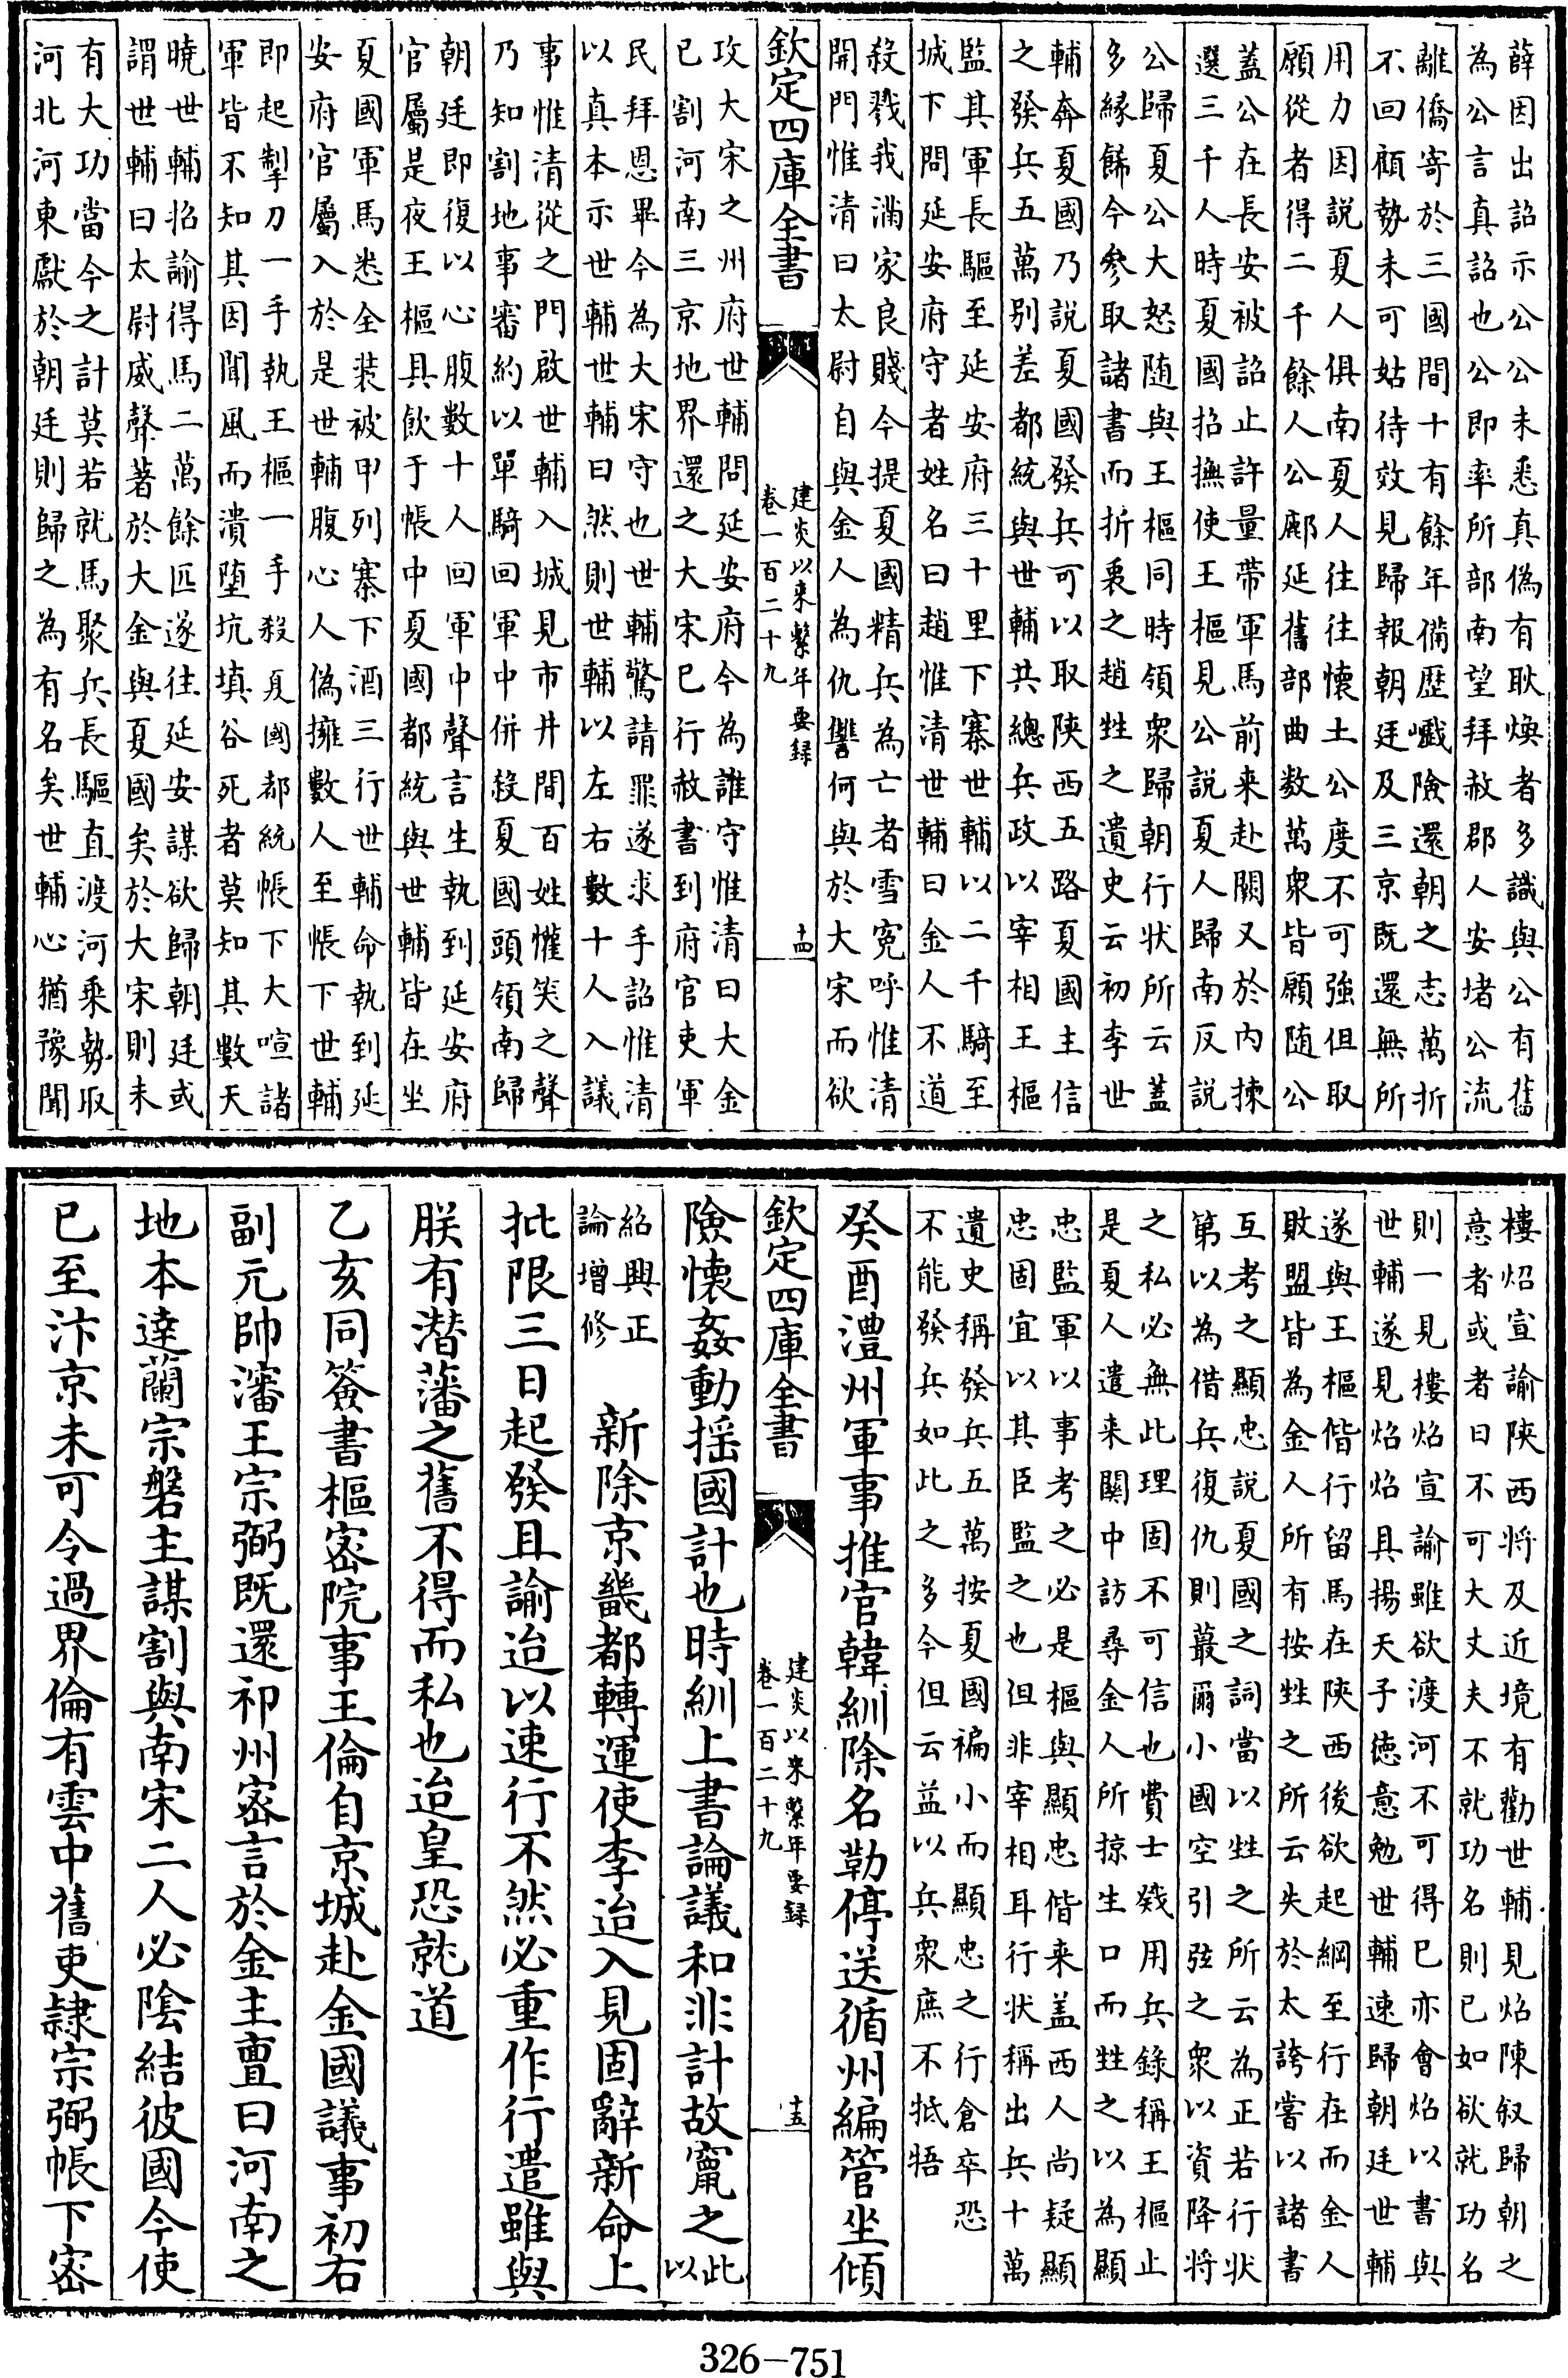 薛因出詔示公公未悉真偽有耿煥者多識與公有舊
為公言真詔也公即率所部南望拜赦郡人安堵公流
離僑寄於三國間十有餘年備歴巇險還朝之志萬折
不回顧勢未可姑待效見歸報朝廷及三京既還無所
用力因説夏人俱南夏人往往懐土公度不可強但取
願從者得二千餘人公鄜延舊部曲数萬衆皆願随公
蓋公在長安被詔止許量帶軍馬前来赴闕又於内揀
選三千人時夏國招撫使王樞見公説夏人歸南反説
公歸夏公大怒随與王樞同時領衆歸朝行状所云蓋
多緣飾今參取諸書而折衷之趙甡之遺史云初李世
輔奔夏國乃説夏國發兵可以取陕西五路夏國主信
之發兵五萬别差都統與世輔共總兵政以宰相王樞
監其軍長驅至延安府三十里下寨世輔以二千騎至
城下問延安府守者姓名曰趙惟清世輔曰金人不道
殺戮我滿家良賤今提夏國精兵為亡者雪寃呼惟清
開門惟清曰太尉自與金人為仇讐何與於大宋而欲
欽定四庫全書
建炎以来繫年要録
卷一百二十九
十四
攻大宋之州府世輔問延安府今為誰守惟清曰大金
已割河南三京地界還之大宋已行赦書到府官吏軍
民拜恩畢今為大宋守也世輔驚請罪遂求手詔惟清
以真本示世輔世輔曰然則世輔以左右數十人入議
事惟清從之門啟世輔入城見市井間百姓懽笑之聲
乃知割地事審約以單騎回軍中併殺夏國頭領南歸
朝廷即復以心腹數十人回軍中聲言生執到延安府
官屬是夜王樞具飲于帳中夏國都統與世輔皆在坐
夏國軍馬悉全装被甲列寨下酒三行世輔命執到延
安府官屬入於是世輔腹心人偽擁數人至帳下世輔
即起掣刀一手執王樞一手殺夏國都統帳下大喧諸
軍皆不知其因聞風而潰墮坑填谷死者莫知其數天
曉世輔招諭得馬二萬餘匹遂往延安謀欲歸朝廷或
謂世輔曰太尉威聲著於大金與夏國矣於大宋則未
有大功當今之計莫若就馬聚兵長驅直渡河乘勢取
河北河東獻於朝廷則歸之為有名矣世輔心猶豫聞
樓炤宣諭陝西将及近境有勸世輔見炤陳叙歸朝之
意者或者曰不可大丈夫不就功名則已如欲就功名
則一見樓炤宣諭雖欲渡河不可得已亦會炤以書與
世輔遂見炤炤具揚天子徳意勉世輔速歸朝廷世輔
遂與王樞偕行留馬在陜西後欲起綱至行在而金人
敗盟皆為金人所有按甡之所云失於太誇嘗以諸書
互考之顯忠説夏國之詞當以甡之所云為正若行状
第以為借兵復仇則蕞爾小國空引弦之衆以資降将
之私必無此理固不可信也費士戣用兵錄稱王樞止
是夏人遣来關中訪尋金人所掠生口而甡之以為顯
忠監軍以事考之必是樞與顯忠偕来盖西人尚疑顯
忠固宜以其臣監之也但非宰相耳行状稱出兵十萬
遺史稱發兵五萬按夏國褊小而顯忠之行倉卒恐
不能發兵如此之多今但云益以兵衆庶不牴牾
癸酉澧州軍事推官韓紃除名勒停送循州編管坐傾
欽定四庫全書
建炎以来繫年要録
卷一百二十九
十五
險懐姦動揺國計也時紃上書論議和非計故竄之此以
紹興正論增修 新除京畿都轉運使李迨入見固辭新命上
批限三日起發且諭迨以速行不然必重作行遣雖與
朕有潜藩之舊不得而私也迨皇恐就道
乙亥同簽書樞密院事王倫自京城赴金國議事初右
副元帥瀋王宗弼既還祁州密言於金主亶曰河南之
地本逹蘭宗磐主謀割與南宋二人必陰結彼國今使
已至汴京未可令過界倫有雲中舊吏隷宗弼帳下密
326-751